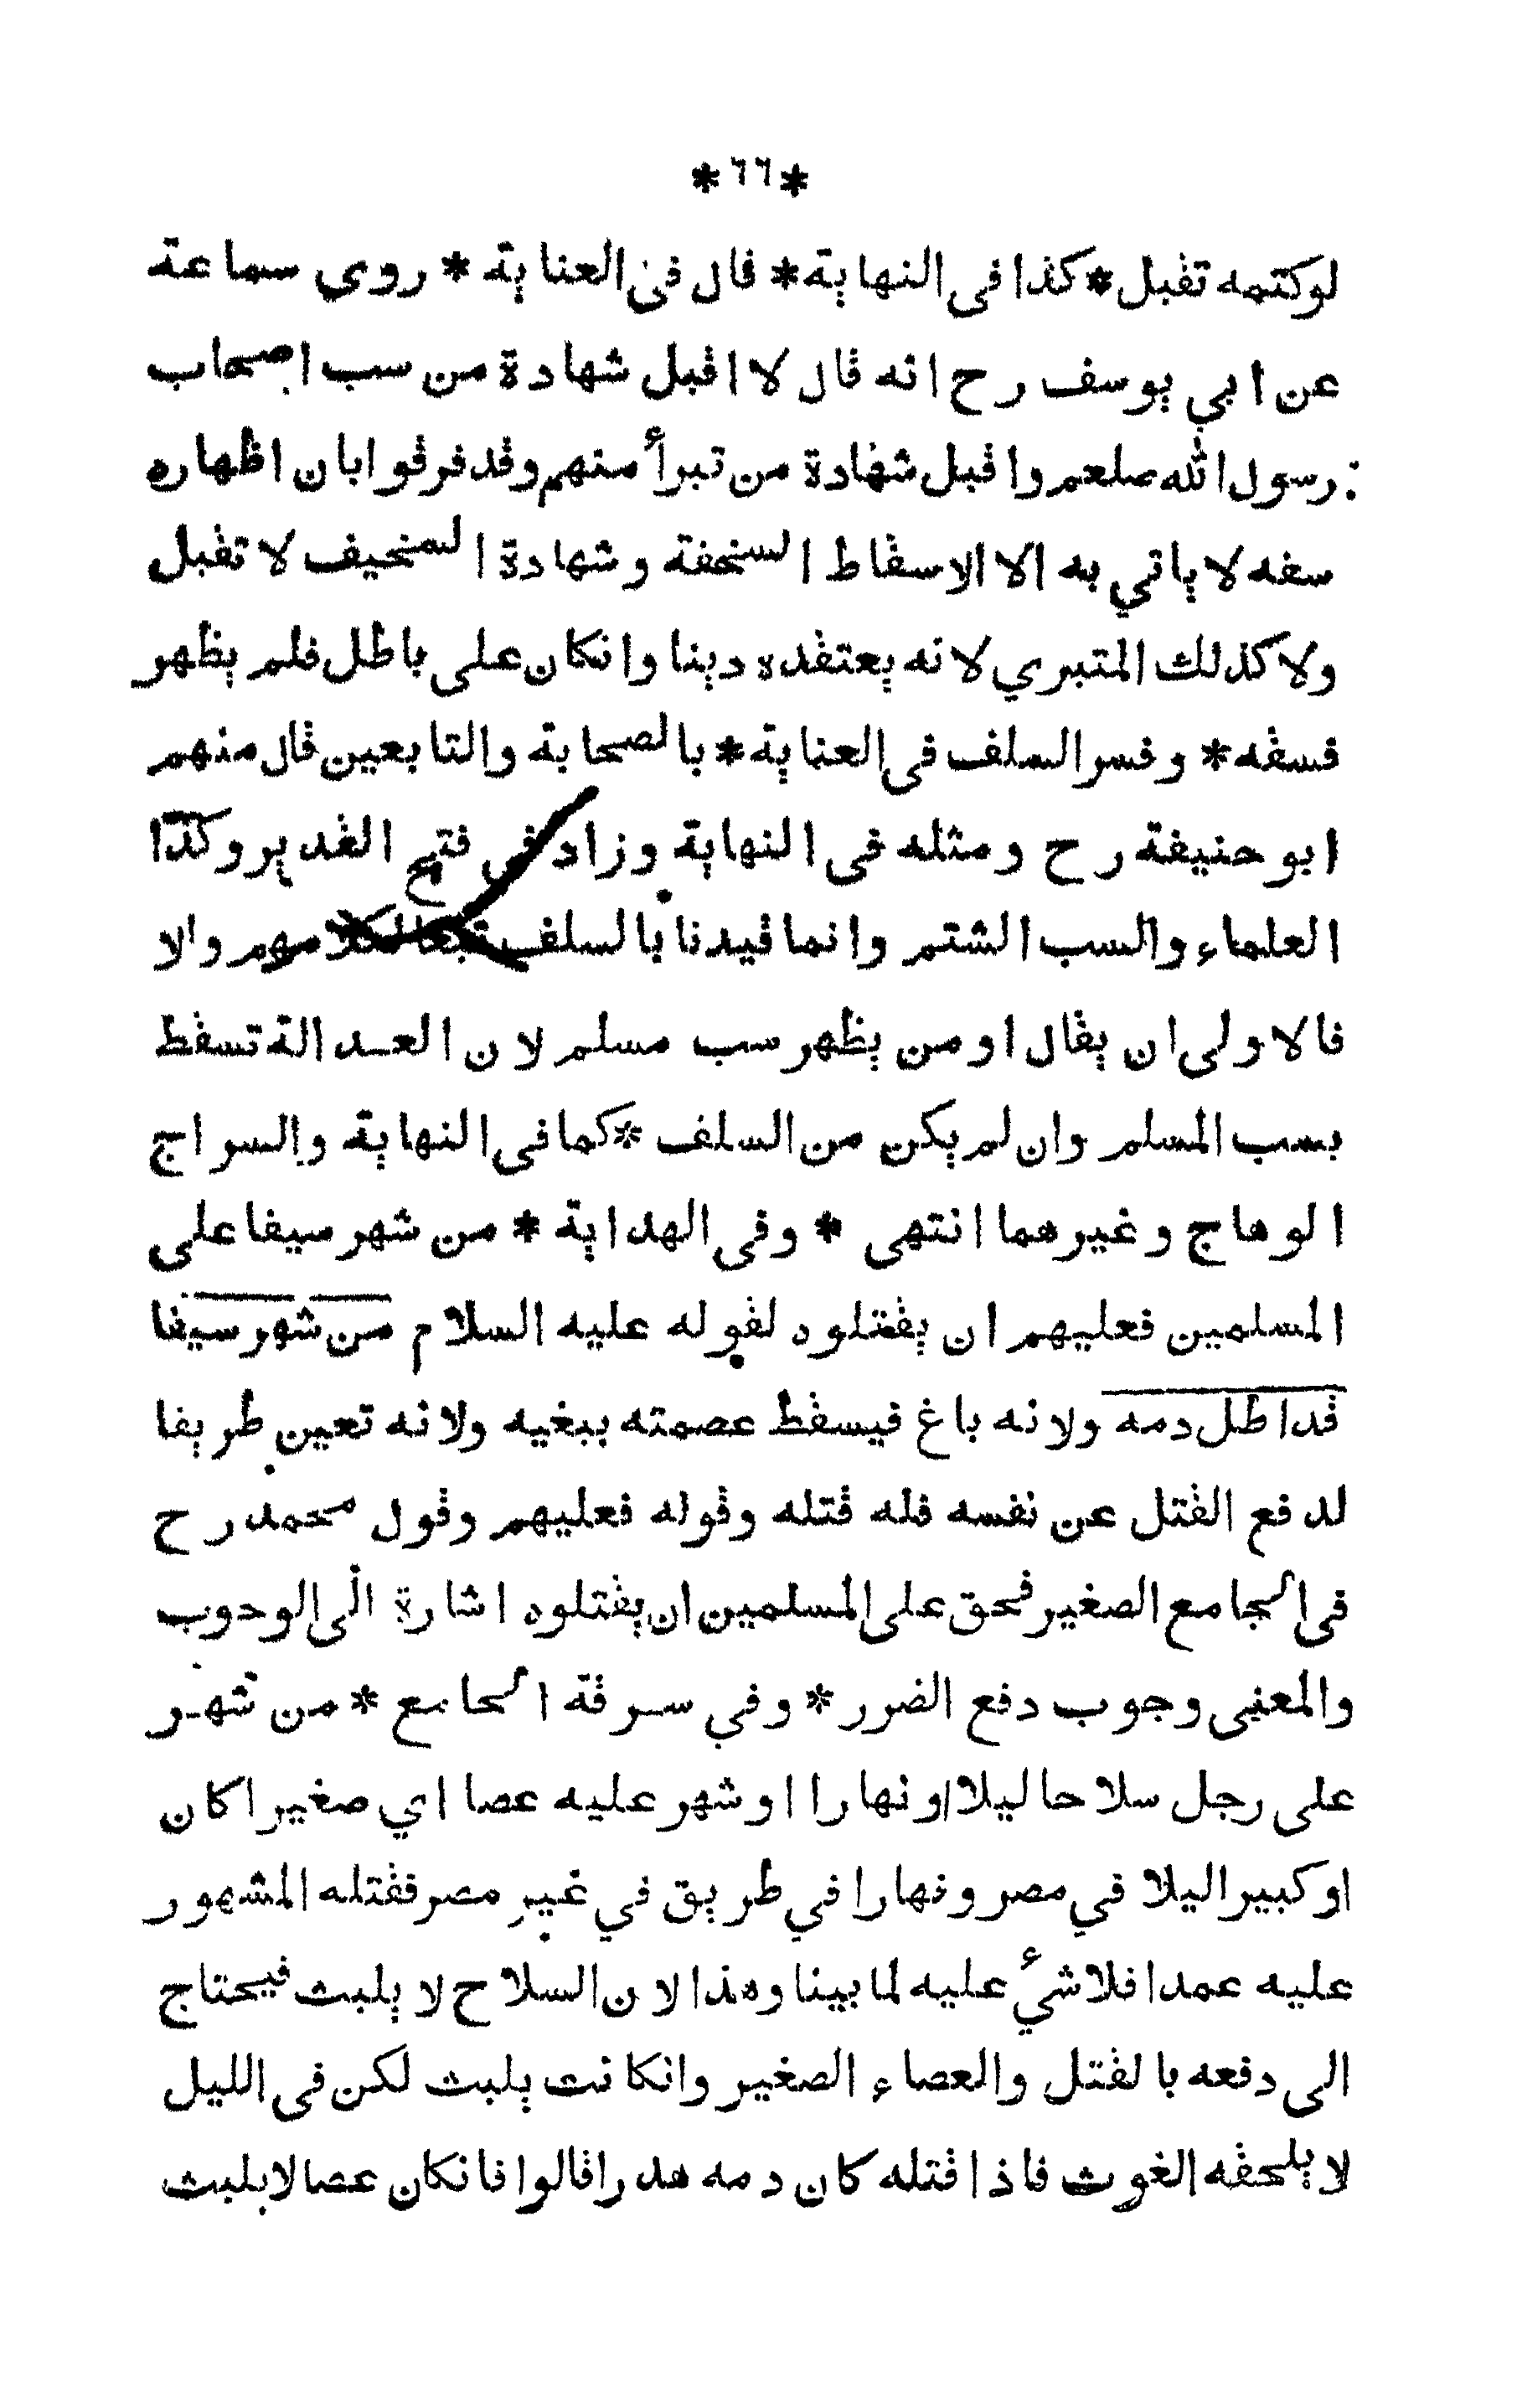 * ٦٦ *
لو كتمه تقبل * كذا في النهاية * قال في العناية * روي سماعة
عن ابي يوسف رح انه قال لا اقبل شهادة من سب اصحاب
رسول الله صلعم واقبل شهادة من تبرأ منهم وقد فرقوا بان اظهاره
سفه لا ياتي به الا الاسقاط السخفة وشهادة السخيف لا تقبل
ولا كذلك المتبري لانه يعتقده دينا وانكان على باطل فلم يظهر
فسقه * وفسر السلف في العناية * بالصحابة والتابعين قال منهم
ابو حنيفة رح ومثله في النهاية وزاد في فتح القدير وكذا
العلماء والسب الشتم وانما قيدنا بالسلف تبعا لكلامهم والا
فالاولى ان يقال او من يظهر سب مسلم لان العدالة تسقط
بسب المسلم وان لم يكن من السلف * كما في النهاية والسراج
الوهاج وغيرهما انتهى * وفي الهداية * من شهر سيفا على
المسلمين فعليهم ان يقتلوه لقوله عليه السلام من شهر سيفا
قد اطل دمه ولانه باغ فيسقط عصمته ببغيه ولانه تعين طريقا
لدفع القتل عن نفسه فله قتله وقوله فعليهم وقول محمد رح
في الجامع الصغير فحق على المسلمين ان يقتلوه اشارة الى الوجوب
والمعنى وجوب دفع الضرر * وفي سرقة الجامع * من شهر
على رجل سلاحا ليلا او نهارا او شهر عليه عصا اي صغيرا كان
او كبيرا ليلا في مصر ونهارا في طريق في غير مصر فقتله المشهور
عليه عمدا فلا شيء عليه لما بينا وهذا لان السلاح لا يلبث فيحتاج
الى دفعه بالقتل والعصاء الصغير وانكانت يلبث لكن في الليل
لا يلحقه الغوث فاذا قتله كان دمه هدرا قالوا فانكان عصا لا يلبث